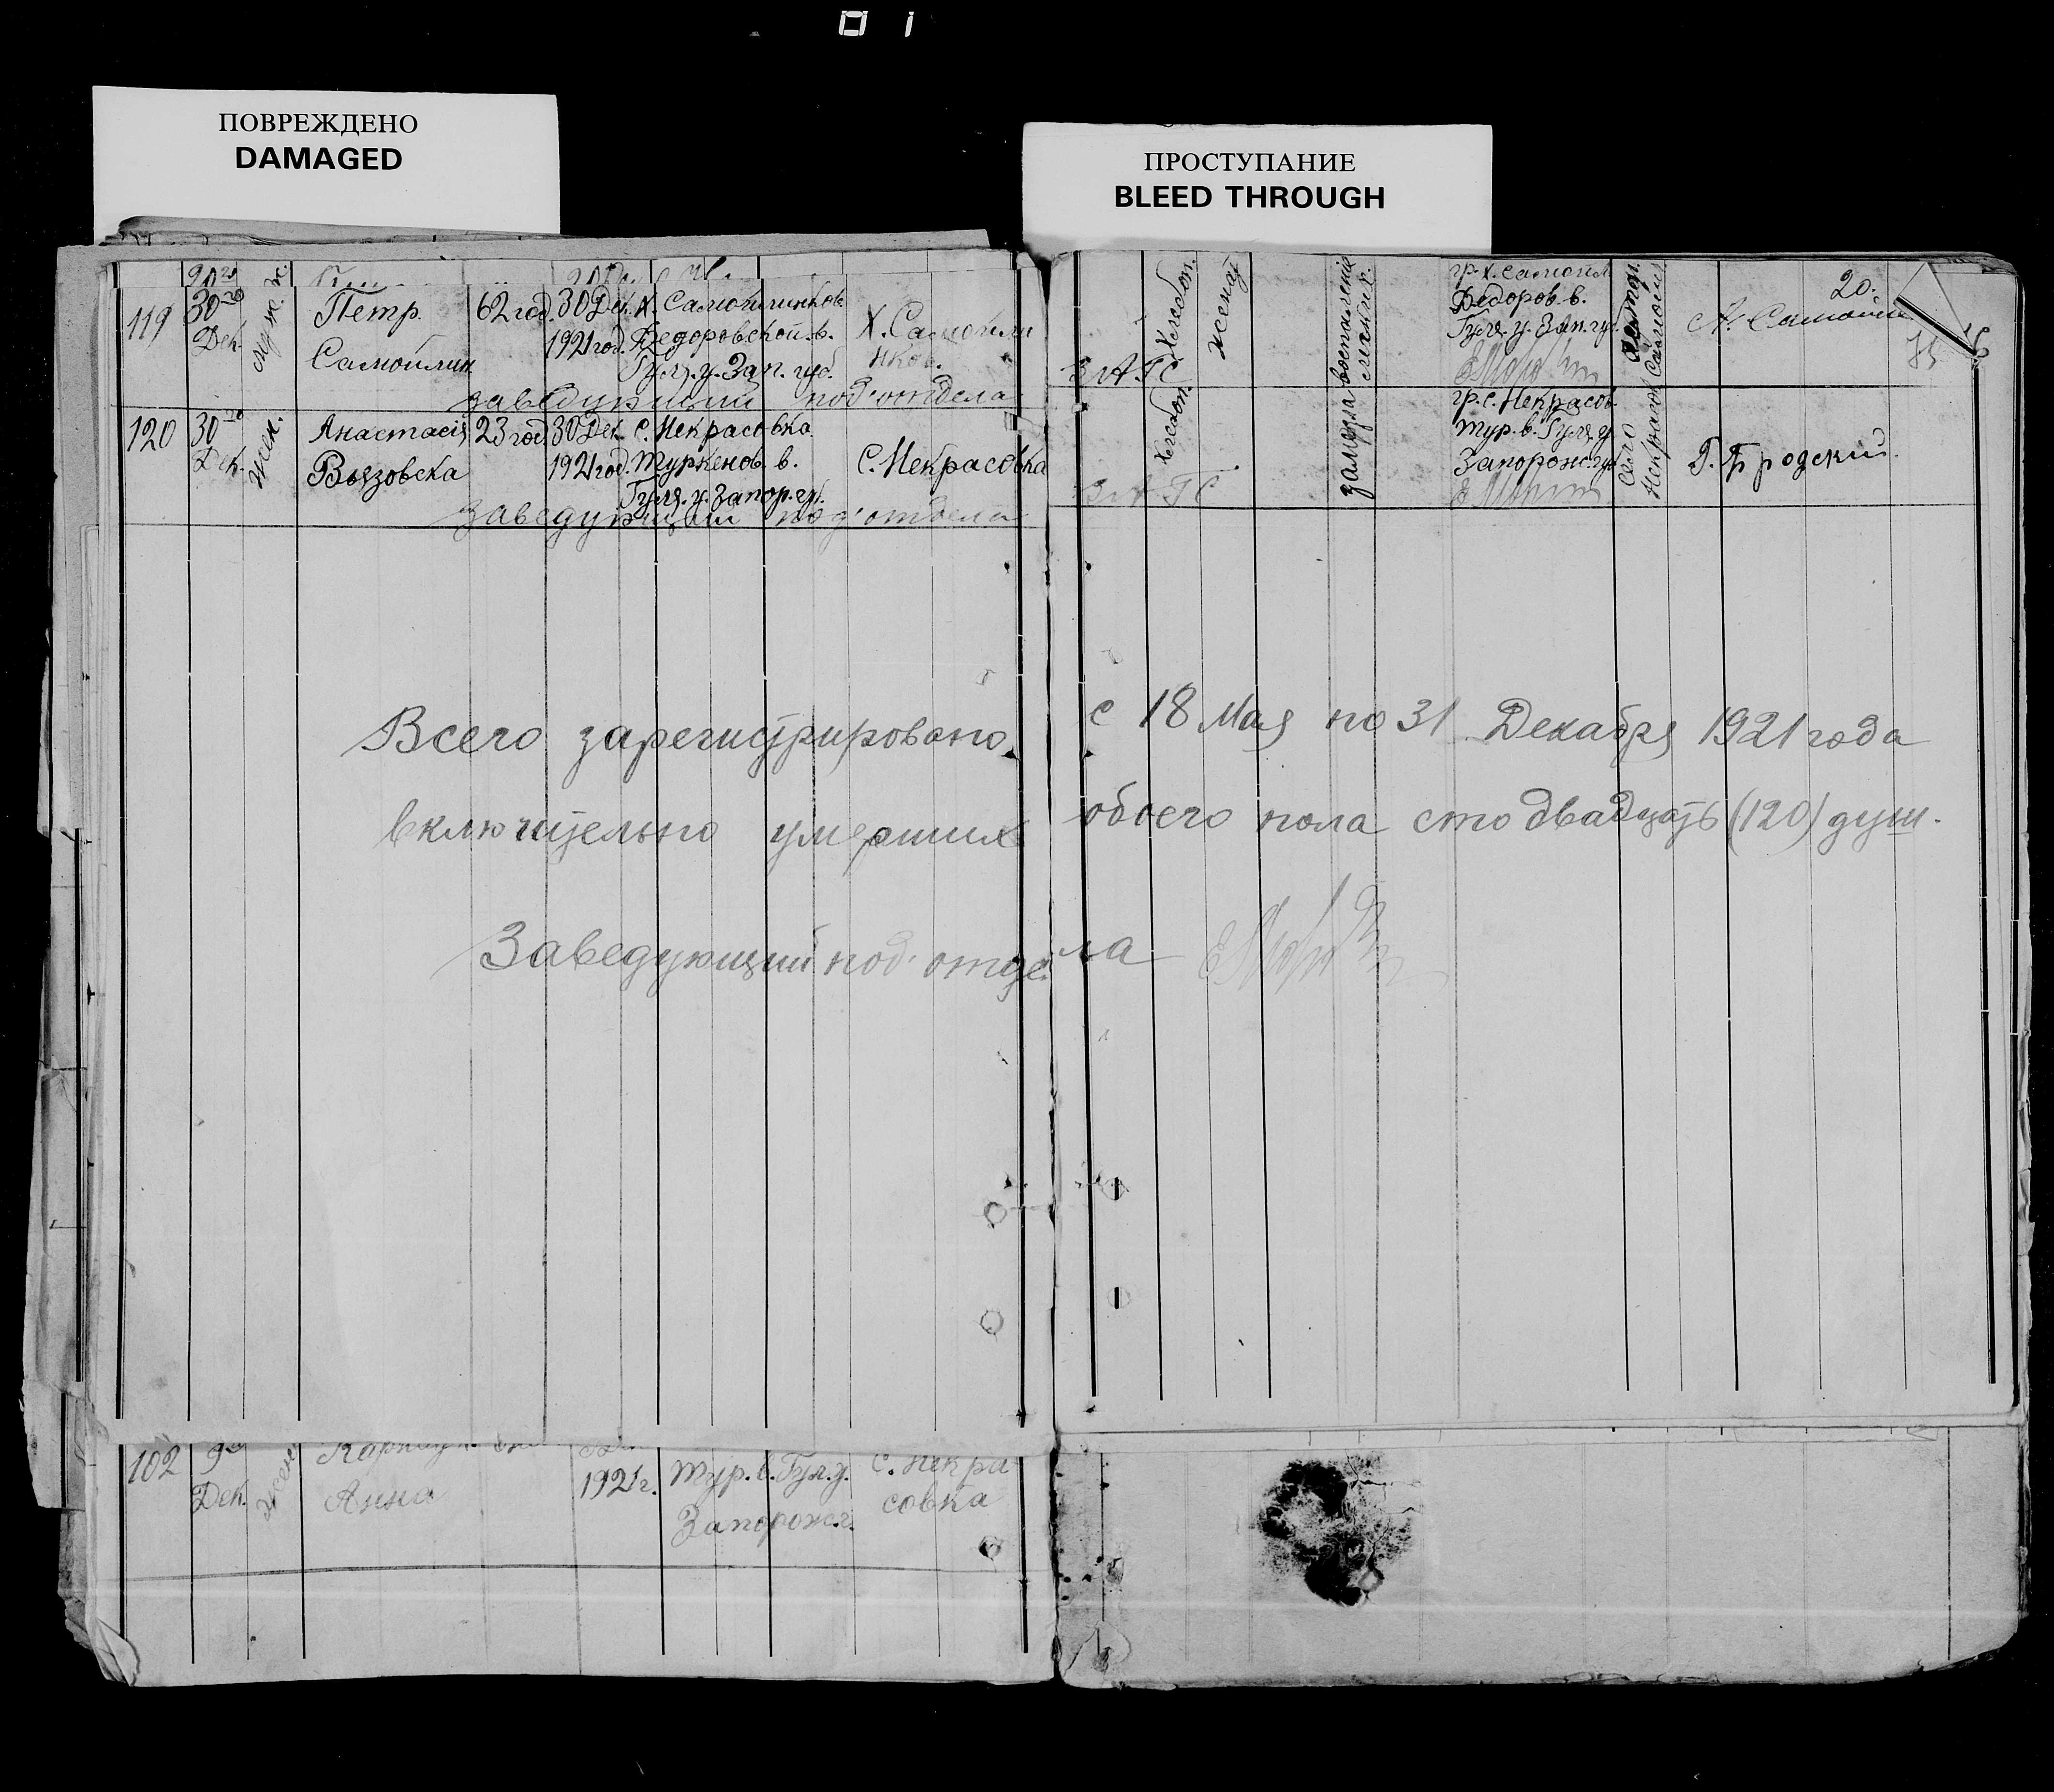 ПОВРЕЖДЕНО
DAMAGED
ПРОСТУПАНИЕ
BLEED THROUGH
119 30го Дек. муж. Петр. Самойлин 62 год. 30 Дек. 1921 год. Х. Самойлинков Федоровской в. Гуля. у. Зап. губ. Х. Самойлинков.
заведующий под'отдела
Хлебоп. женат гр. х. Самойл Федоров. в. Гуля. у. Зап. гу. хутор. Самойл 20.
ЗАГС
120 30го Дек. жен. Анастасія Вязовска 23 год 30 Дек. 1921 год. с. Некрасовка Туркенов. в. Гуля. у. Запор. гу. С. Некрасовка
заведующий под'отдела
Хлебоп. воспаление легких. гр. с. Некрасов. Тур. в. Гуля. у Запорож. гу Село Некрасов Г. Бродский.
ЗАГС
Всего зарегистрировано с 18 Мая по 31 Декабря 1921 года
включительно умерших обоего пола сто двадцать (120) душ.
Заведующий под'отдела
102 9го Дек. жен Анна 1921 г. Тур. в. Гул. у. Запорож. г. С. Некрасовка